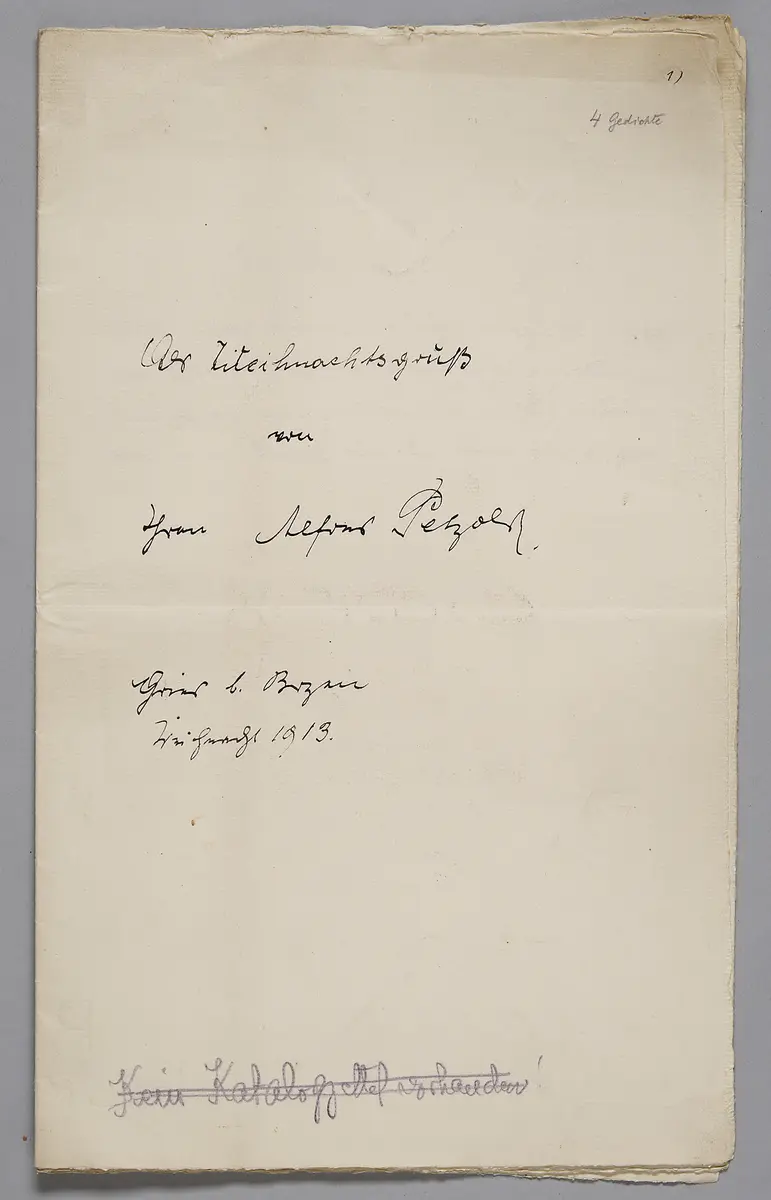 1)
4 Gedichte
Als Weihnachtsgruß
von
Ihrem Alfons Petzold.
Gries b. Bozen
Weihnacht 1913.
Kein Katalogzettel vorhanden!